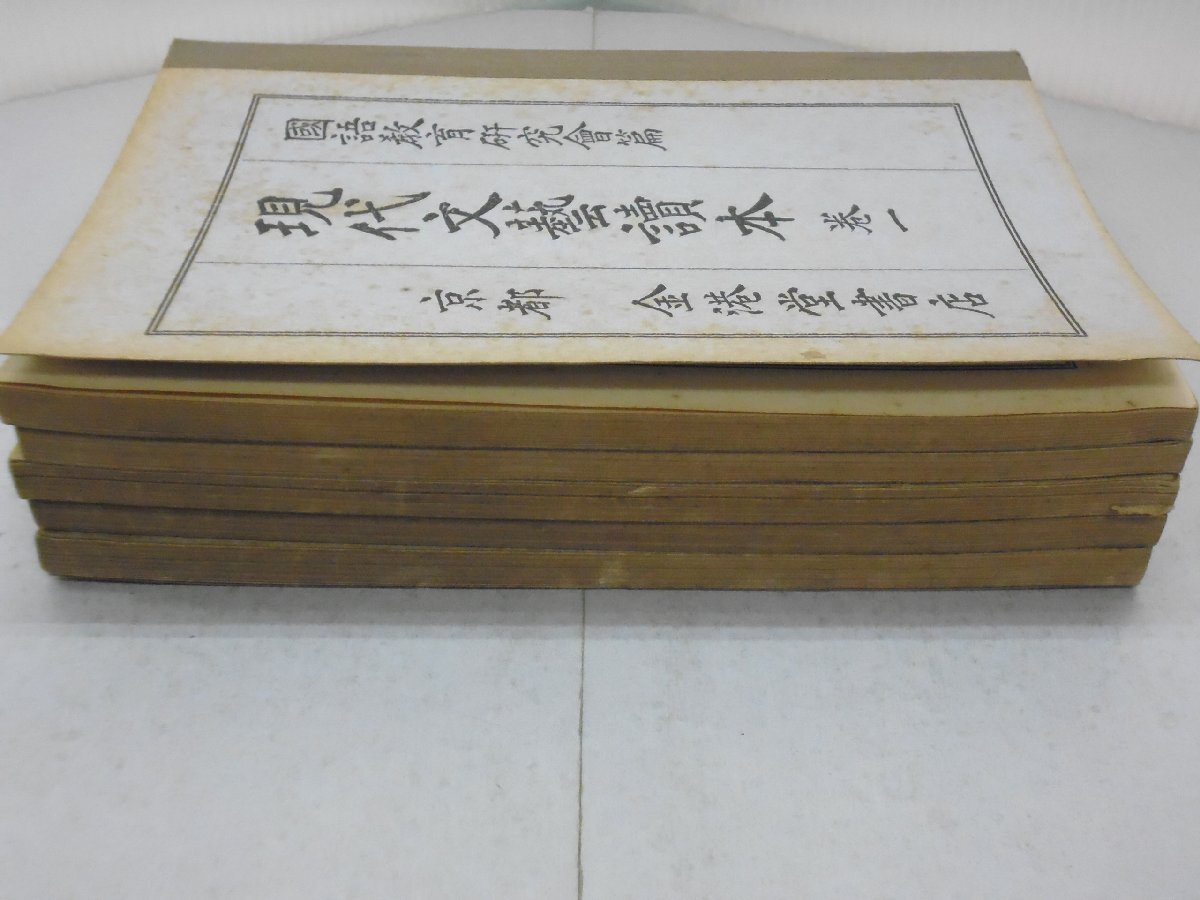 國語敎育硏究會篇
現代文藝讀本 卷一
京都 金港堂書店